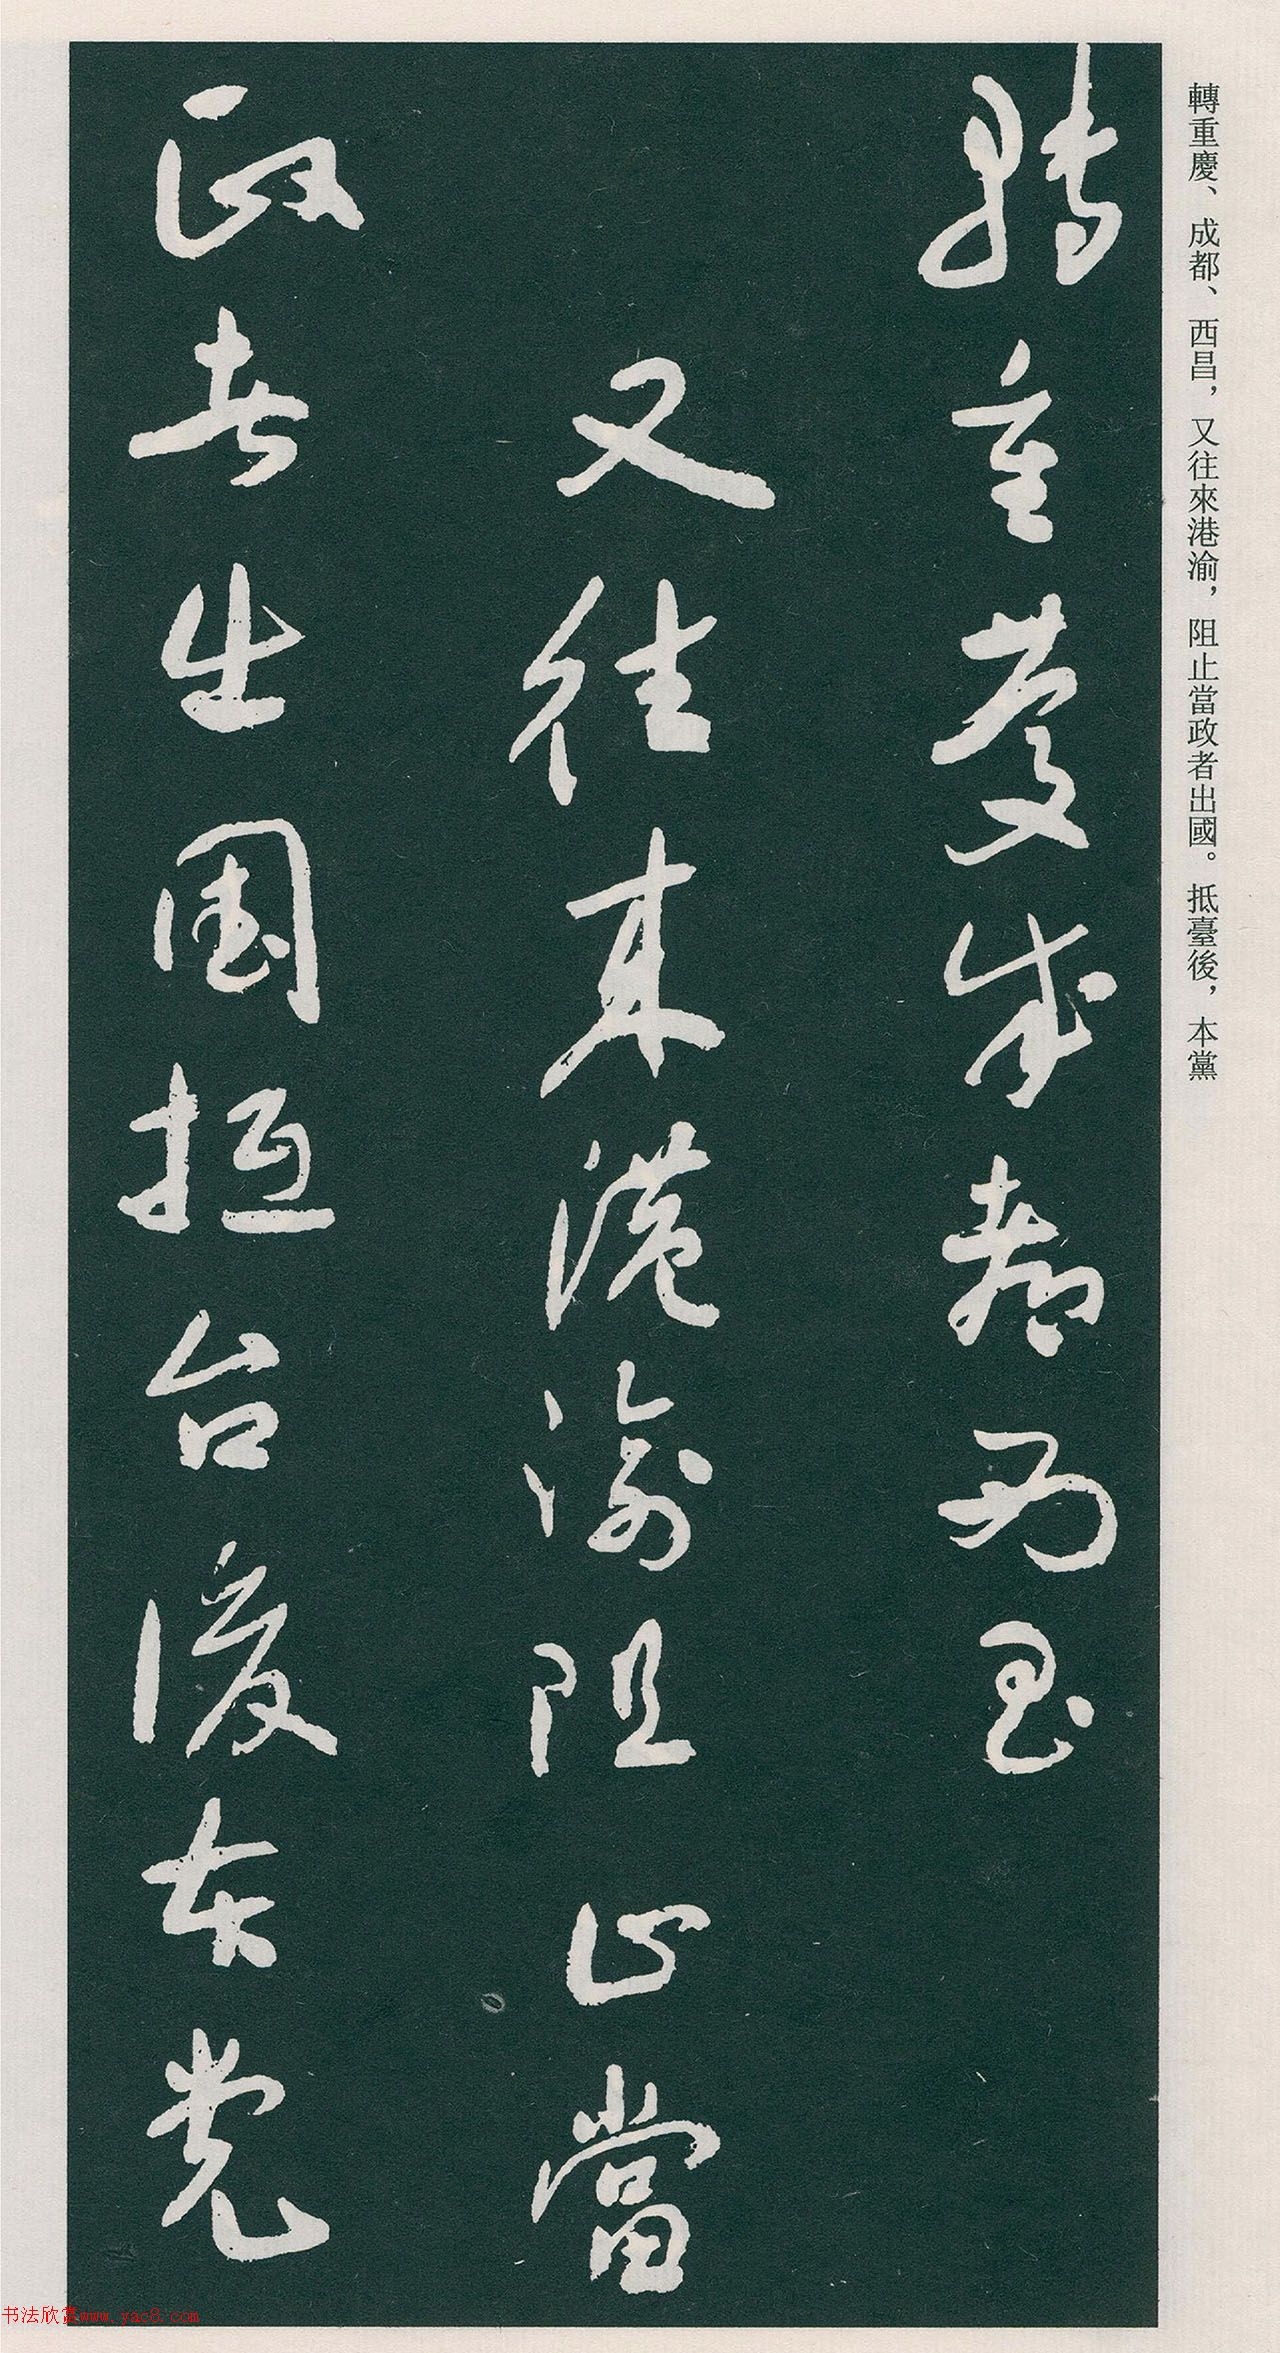 轉重慶、成都、西昌，又往來港渝，阻止當政者出國。抵臺後，本黨
轉重慶成都西昌
又往來港渝阻止當
政者出國抵台後本党
书法欣赏www.yac8.com